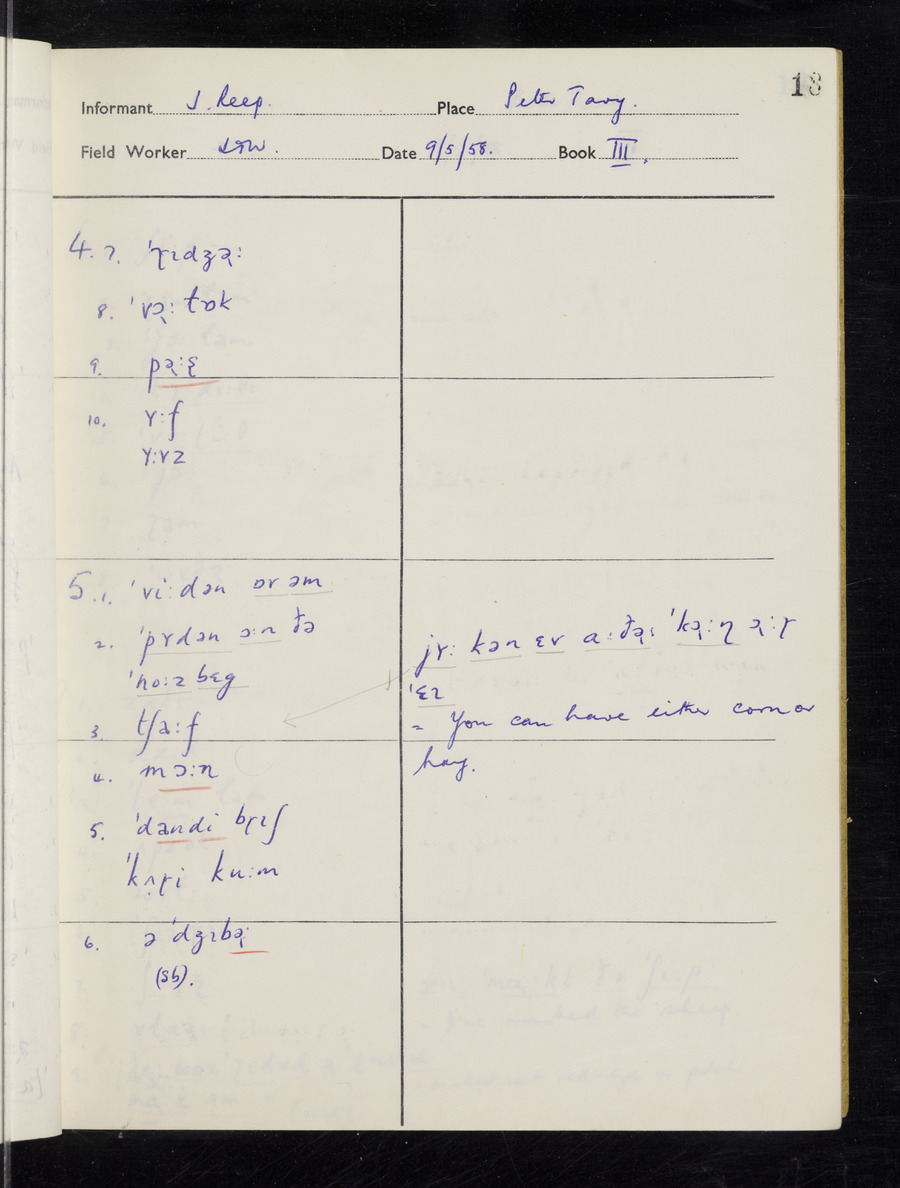 13
Informant J. Reep. Place Peter Tavy.
Field Worker Date 9/5/58. Book III.
4. 7. ˈɽɪdʒə̢ː
8. ˈvə̢ː tɒk
9. pə̢ːɛ̢
10. ʏːf
ʏːvz
5. 1. ˈviːdən ɒv əm
2. ˈpʏdən ɔːn ðə
ˈnoːz bɛg
3. tʃaːf
4. mɔːn
5. ˈdandi bɽɪʃ
ˈkʌɽi kuːm
6. ə ˈdʒɪbə̢ː
(sb).
jʏː kən ɛv aːðə̢ː ˈkə̢ːɳ ə̢ːɽ
ˈɛɪ
= You can have either corn or
hay.